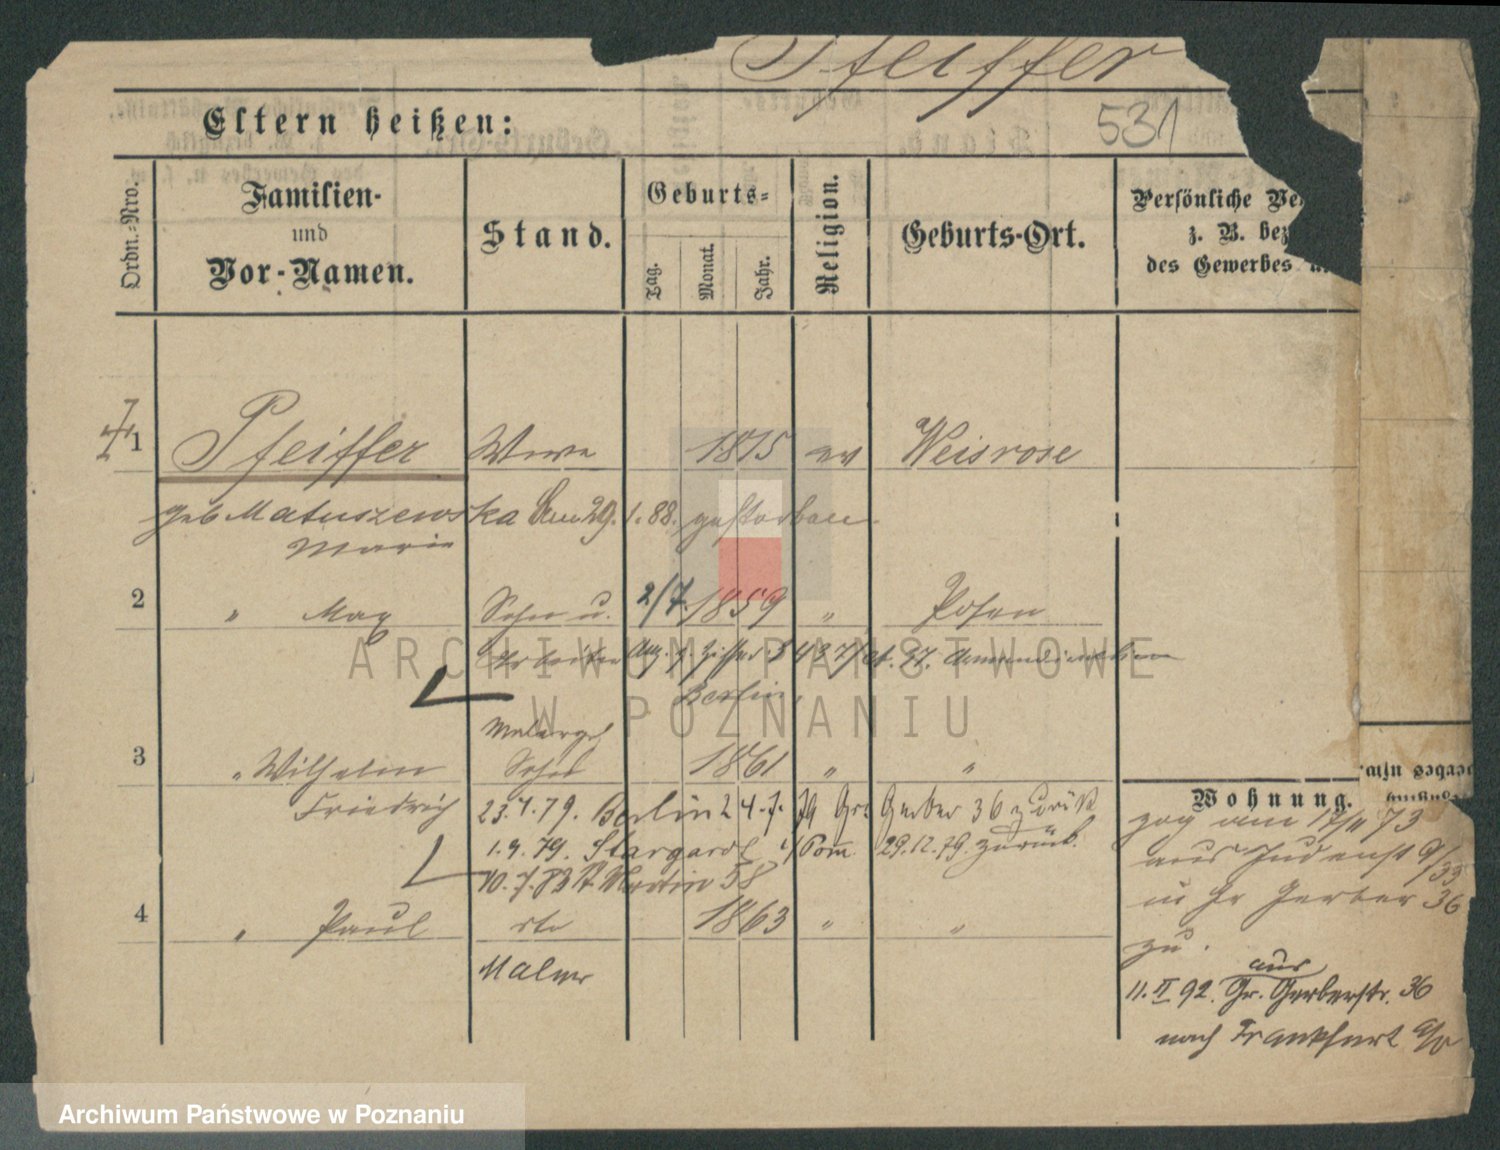 Pfeiffer
Eltern heißen:
531
Ordn.-Nro.
Familien-
und
Vor-Namen.
Stand.
Geburts-
Tag.
Monat.
Jahr.
Religion.
Geburts-Ort.
Persönliche Ve
z. B. bez
des Gewerbes u
1 Pfeiffer Wwe 1815 ev Weisrose
geb Matuszewska Am 29. 1. 88. gestorben
Marie
2 " Max Sohn u. 2/7. 1859 " Posen
Arbeiter
Berlin
Malergeh
3 " Wilhelm Sohn 1861 " "
Friedrich 23.4.79. Berlin 24.7.79 Gr. Gerber 36 zurück
1.9.79. Stargard i/Pom. 29.12.79. zurück.
10.7.83 St Martin 58
4 " Paul dto 1863 " "
Maler
Wohnung.
zog am 17/11 73
aus Judenst 9/33
in Gr Gerber 36
zu.
aus
11. II 92. Gr. Gerberstr. 36
nach Frankfurt a/O
ARCHIWUM PAŃSTWOWE
W POZNANIU
Archiwum Państwowe w Poznaniu